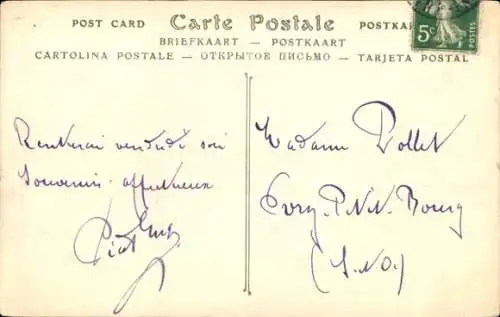 POST CARD Carte Postale POSTKA
BRIEFKAART — POSTKAART
CARTOLINA POSTALE — ОТКРЫТОЕ ПИСЬМО — TARJETA POSTAL
5c
POSTES
Rentrerai vendredi soi
Souvenir affectueux
Madame Pollet
Bourg